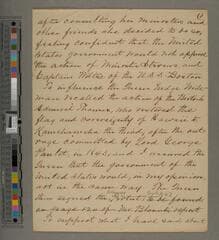 after consulting her Ministers and
other friends she decided to do so,
feeling confident that the United
States government would not approve
the action of Minister Stevens and
Captain Wiltse of the U.S.S. Boston
To influence the Queen Judge Wide-
mann recalled the action of the British
Admiral Thomas, who restored the
flag and sovereignty of Hawaii to
Kamehameha the Third, after the out-
rage committed by Lord George
Paulet, in 1843, and I assured the
Queen that the government of the
United States would, in my opinion,
act in the same way. The Queen
then signed the Protest, to be found
on page of Col. Blount's report.
To support what I have said about